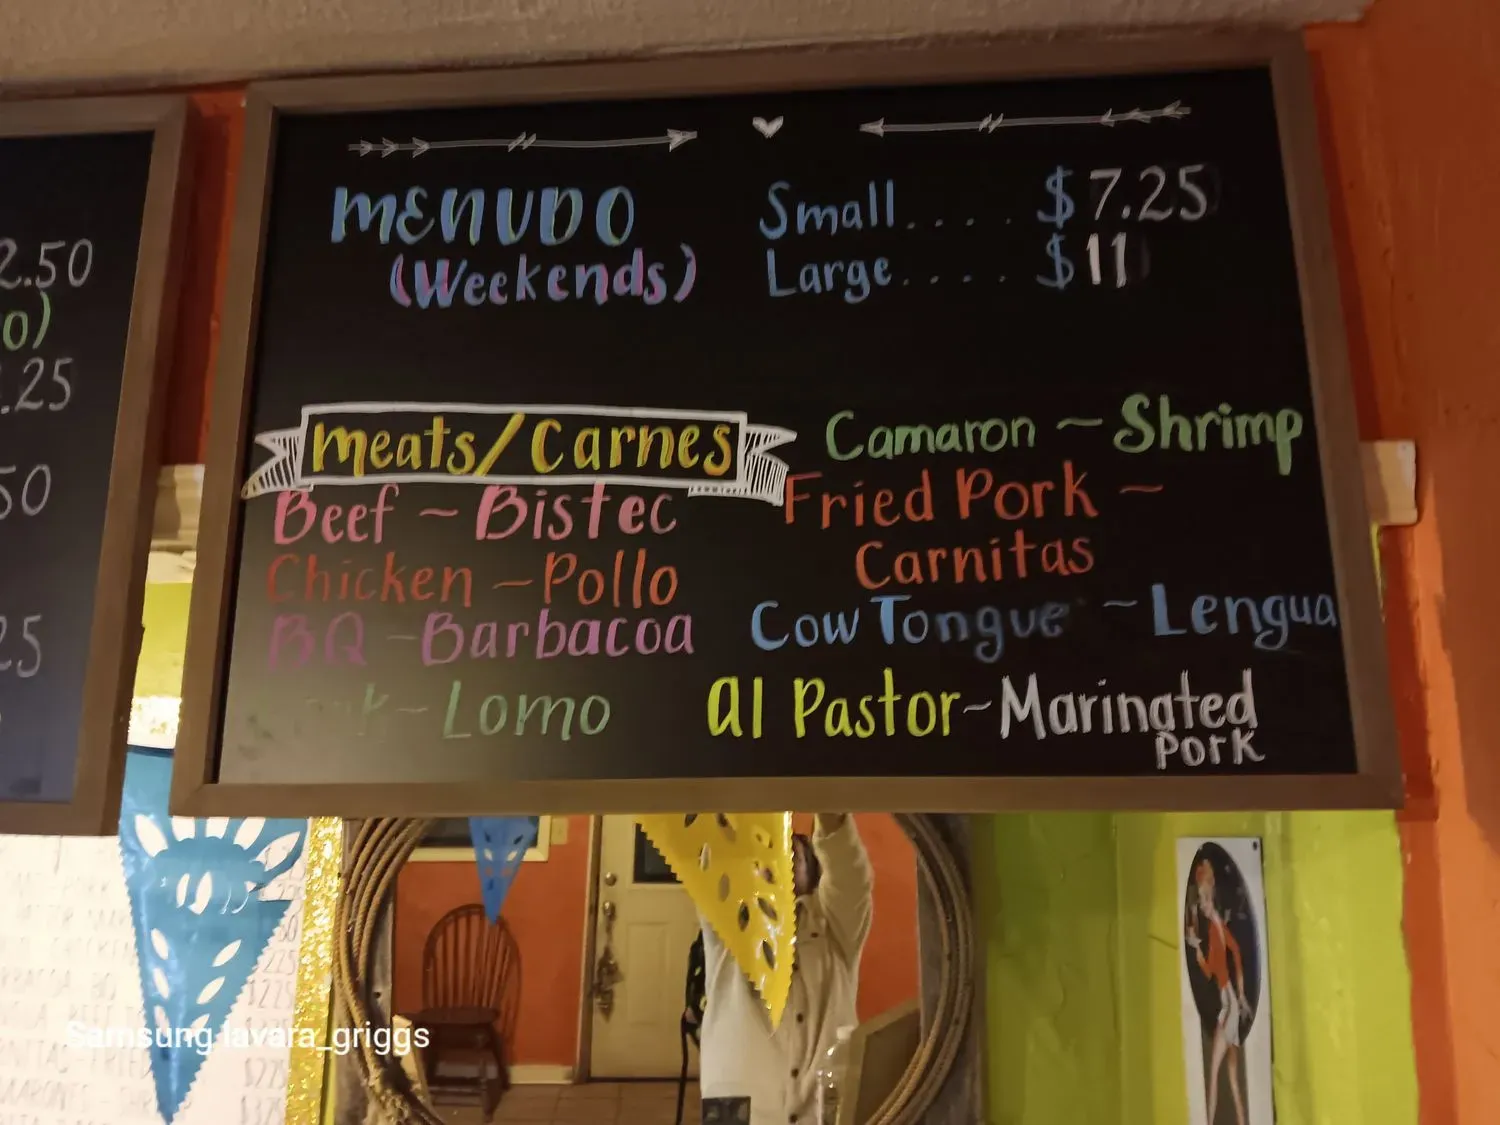 MENUDO
(Weekends)
Small.... $7.25
Large.... $11
Meats/Carnes
Beef ~ Bistec
Chicken ~ Pollo
BQ ~ Barbacoa
~ Lomo
Camaron ~ Shrimp
Fried Pork ~
Carnitas
Cow Tongue ~ Lengua
al Pastor ~ Marinated
Pork
2.50
.25
50
25
Samsung lavara_griggs